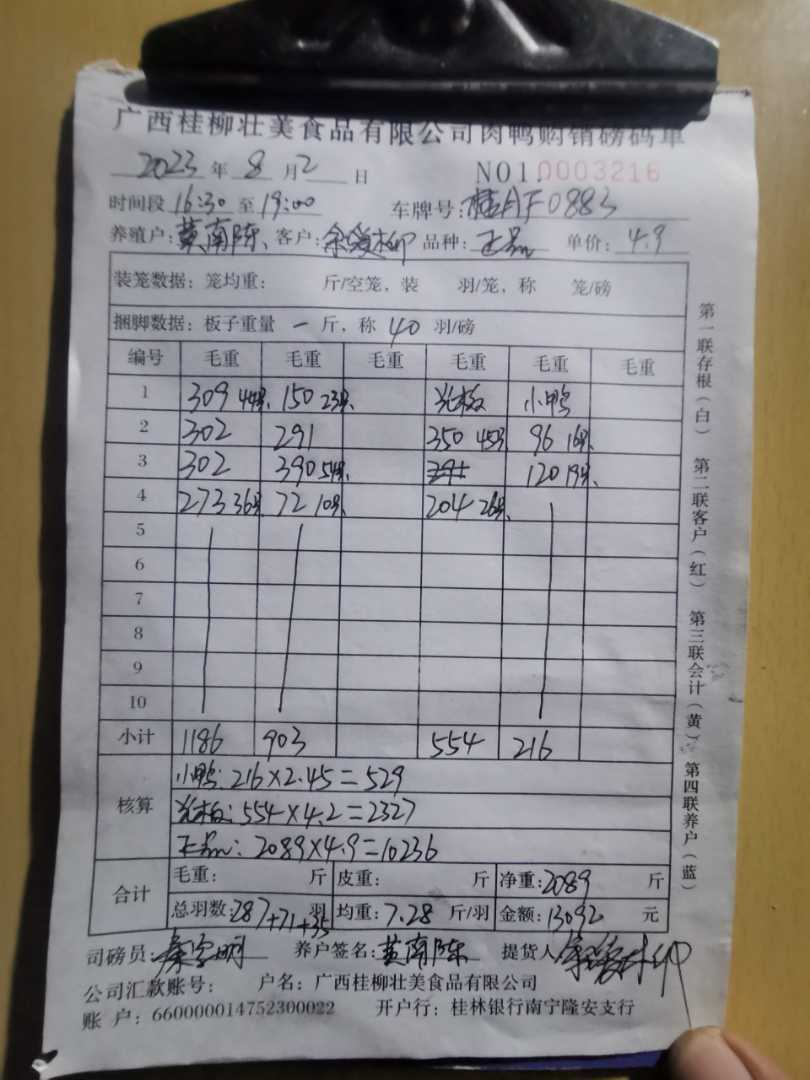 广西桂柳壮美食品有限公司肉鸭购销磅码单
2023年8月2日 NO10003216
时间段16:30至19:00 车牌号:桂AF0883
养殖户:黄南陈、客户:余爱柳 品种:正品 单价:4.9
装笼数据:笼均重: 斤/空笼,装 羽/笼,称 笼/磅
捆脚数据:板子重量 一 斤,称 40 羽/磅
编号 毛重 毛重 毛重 毛重 毛重 毛重
1 309 44只 150 23只 光板 小鸭
2 302 291 350 45只 96 16只
3 302 390 54只 120 19只
4 273 36只 72 10只 204 26只
5
6
7
8
9
10
小计 1186 903 554 216
核算
小鸭:216×2.45=529
光板:554×4.2=2327
正品:2089×4.9=10236
合计
毛重: 斤 皮重: 斤 净重:2089 斤
总羽数:287+71+35 羽 均重:7.28 斤/羽 金额:13092 元
司磅员: 养户签名:黄南陈 提货人
公司汇款账号: 户名:广西桂柳壮美食品有限公司
账 户:660000014752300022 开户行:桂林银行南宁隆安支行
第一联存根(白) 第二联客户(红) 第三联会计(黄) 第四联养户(蓝)